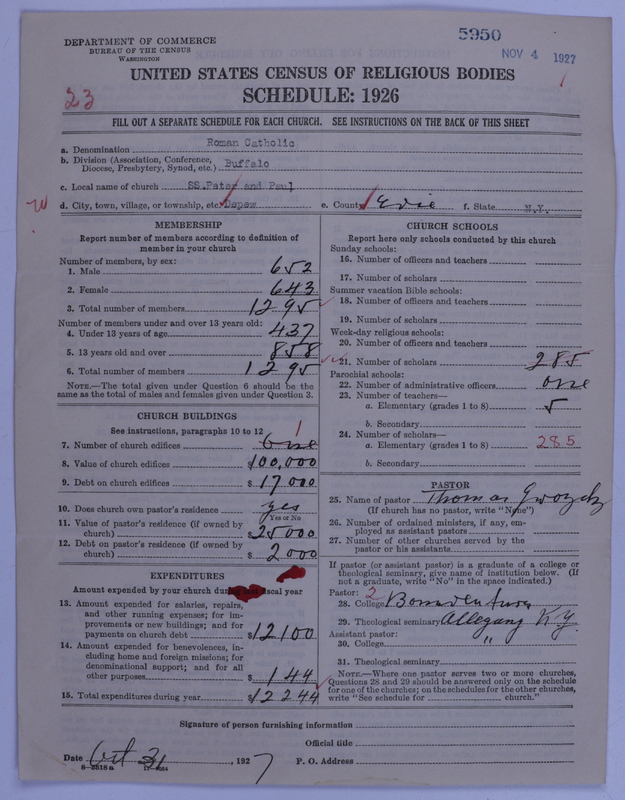 DEPARTMENT OF COMMERCE
BUREAU OF THE CENSUS
WASHINGTON
5950
NOV 4 1927
UNITED STATES CENSUS OF RELIGIOUS BODIES
SCHEDULE: 1926
23
FILL OUT A SEPARATE SCHEDULE FOR EACH CHURCH. SEE INSTRUCTIONS ON THE BACK OF THIS SHEET
a. Denomination Roman Catholic
b. Division (Association, Conference, Diocese, Presbytery, Synod, etc.) Buffalo
c. Local name of church SS.Peter and Paul
d. City, town, village, or township, etc. Depew e. County Erie f. State N.Y.
MEMBERSHIP
Report number of members according to definition of member in your church
Number of members, by sex:
1. Male 652
2. Female 643
3. Total number of members 1295
Number of members under and over 13 years old:
4. Under 13 years of age 437
5. 13 years old and over 858
6. Total number of members 1295
NOTE.—The total given under Question 6 should be the same as the total of males and females given under Question 3.
CHURCH BUILDINGS
See instructions, paragraphs 10 to 12
7. Number of church edifices One 1
8. Value of church edifices $100,000
9. Debt on church edifices $17000
10. Does church own pastor's residence yes
Yes or No
11. Value of pastor's residence (if owned by church) $25000
12. Debt on pastor's residence (if owned by church) $2000
EXPENDITURES
Amount expended by your church during last fiscal year
13. Amount expended for salaries, repairs, and other running expenses; for improvements or new buildings; and for payments on church debt $12100
14. Amount expended for benevolences, including home and foreign missions; for denominational support; and for all other purposes $144
15. Total expenditures during year $12244
CHURCH SCHOOLS
Report here only schools conducted by this church
Sunday schools:
16. Number of officers and teachers
17. Number of scholars
Summer vacation Bible schools:
18. Number of officers and teachers
19. Number of scholars
Week-day religious schools:
20. Number of officers and teachers
21. Number of scholars 285
Parochial schools:
22. Number of administrative officers one
23. Number of teachers—
a. Elementary (grades 1 to 8) 5
b. Secondary
24. Number of scholars—
a. Elementary (grades 1 to 8) 285
b. Secondary
PASTOR
25. Name of pastor Thomas Gwozdz
(If church has no pastor, write "None")
26. Number of ordained ministers, if any, employed as assistant pastors
27. Number of other churches served by the pastor or his assistants
If pastor (or assistant pastor) is a graduate of a college or theological seminary, give name of institution below. (If not a graduate, write "No" in the space indicated.)
Pastor: 2
28. College Bonaventure
29. Theological seminary Allegany N.Y.
Assistant pastor:
30. College "
31. Theological seminary
NOTE.—Where one pastor serves two or more churches, Questions 28 and 29 should be answered only on the schedule for one of the churches; on the schedules for the other churches, write "See schedule for church."
Signature of person furnishing information
Official title
Date Oct 31, 1927 P. O. Address